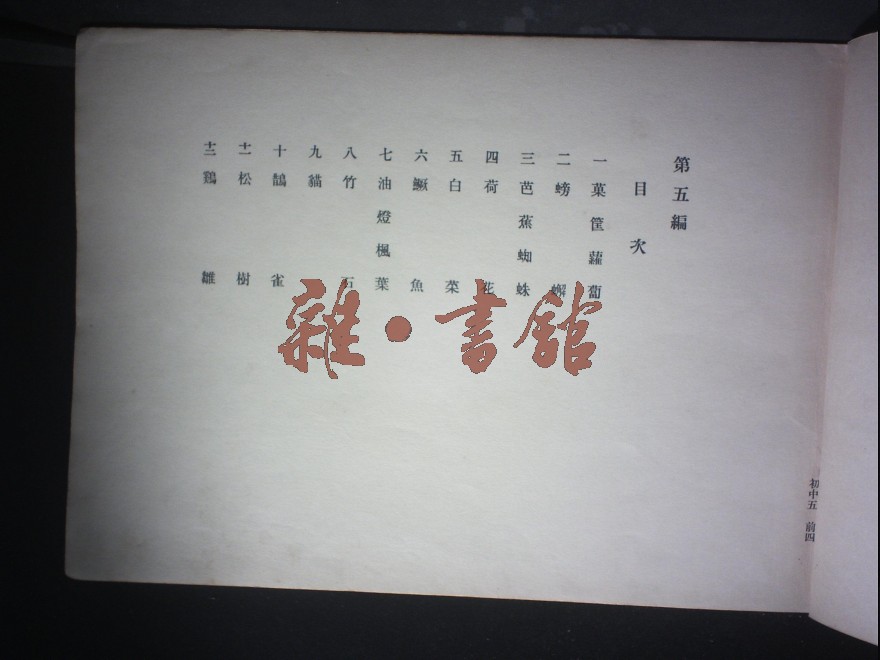 第五編
目次
一 菓筐蘿蔔
二 螃蠏
三 芭蕉蜘蛛
四 荷花
五 白菜
六 鱖魚
七 油燈楓葉
八 竹石
九 貓
十 鵲雀
十一 松樹
十二 鷄雛
初中五 前四
雜·書館